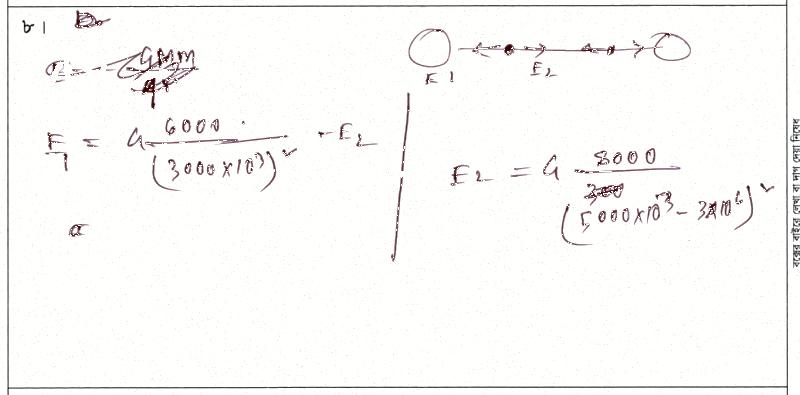 ৮।
E1 E2
E1 = G 6000 / (3000×10³)² - E2
E2 = G 8000 / (5000×10³ - 3×10⁶)²
a
বক্সের বাইরে লেখা বা দাগ দেয়া নিষেধ